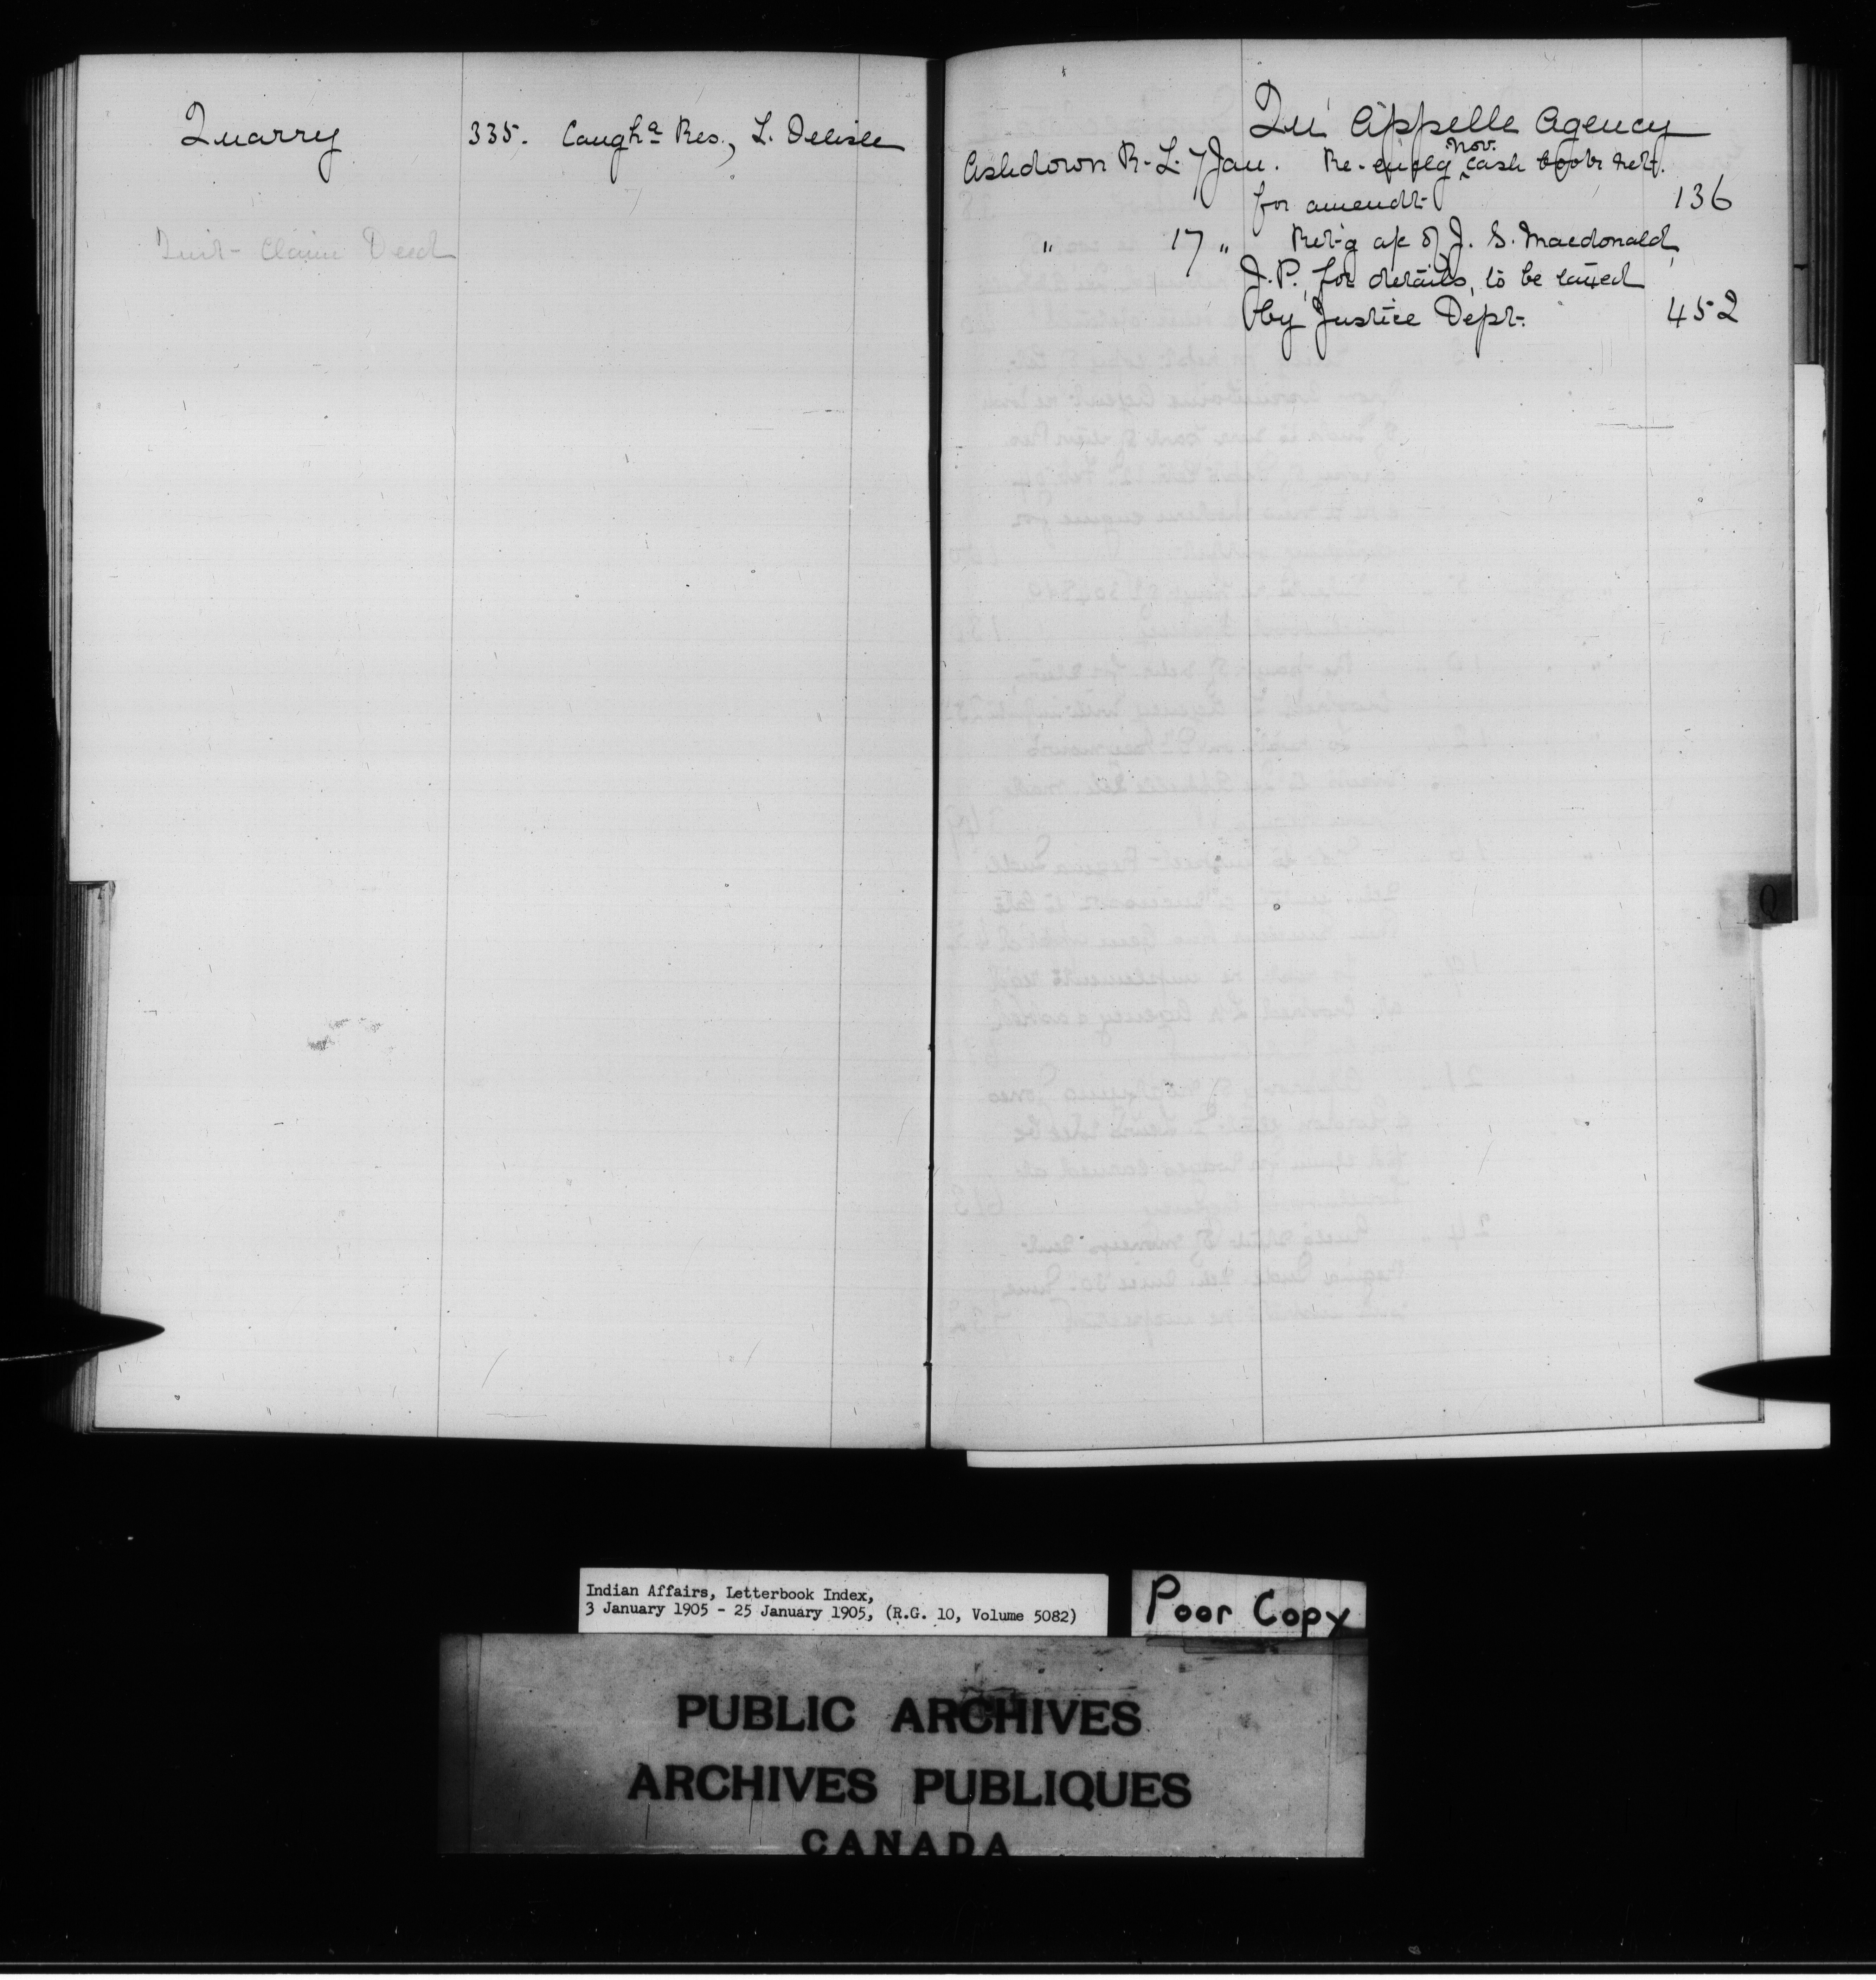 Quarry 335. Caugha Res., L. Delisle
Quit-Claim Deed
Qu'Appelle Agency
Ashdown R. L. 7 Jan. Re- Nov. cash book ret.
for amendt. 136
" 17 " Ret'g a/c of J. S. Macdonald,
J.P., for details, to be taxed
by Justice Dept. 452
Q
Indian Affairs, Letterbook Index,
3 January 1905 - 25 January 1905, (R.G. 10, Volume 5082)
Poor Copy
PUBLIC ARCHIVES
ARCHIVES PUBLIQUES
CANADA